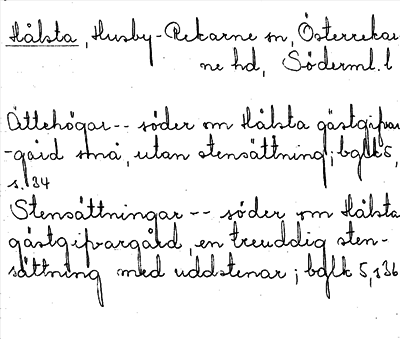 Hålsta, Husby-Rekarne sn, Österrekar
ne hd, Söderml. l
Ättehögar -- söder om Hålsta gästgifvar
-gård små, utan stensättning; bglk 5,
s. 34
Stensättningar -- söder om Hålsta
gästgifvargård, en treuddig sten-
sättning med uddstenar; bglk 5, s 36